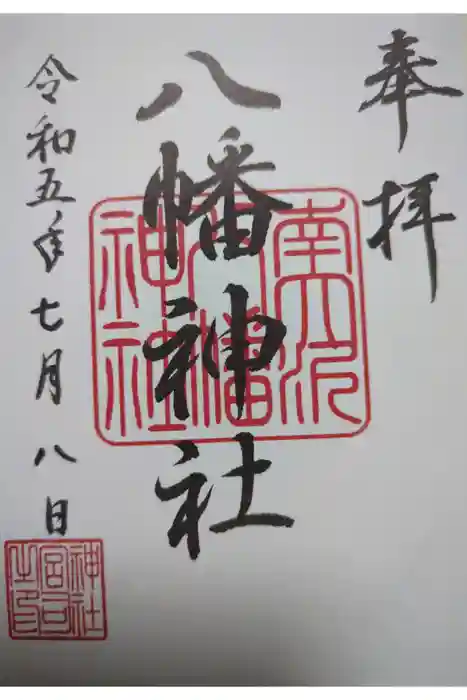 奉拝
八幡神社
令和五年七月八日
八幡
神社
神社
宮司
之印